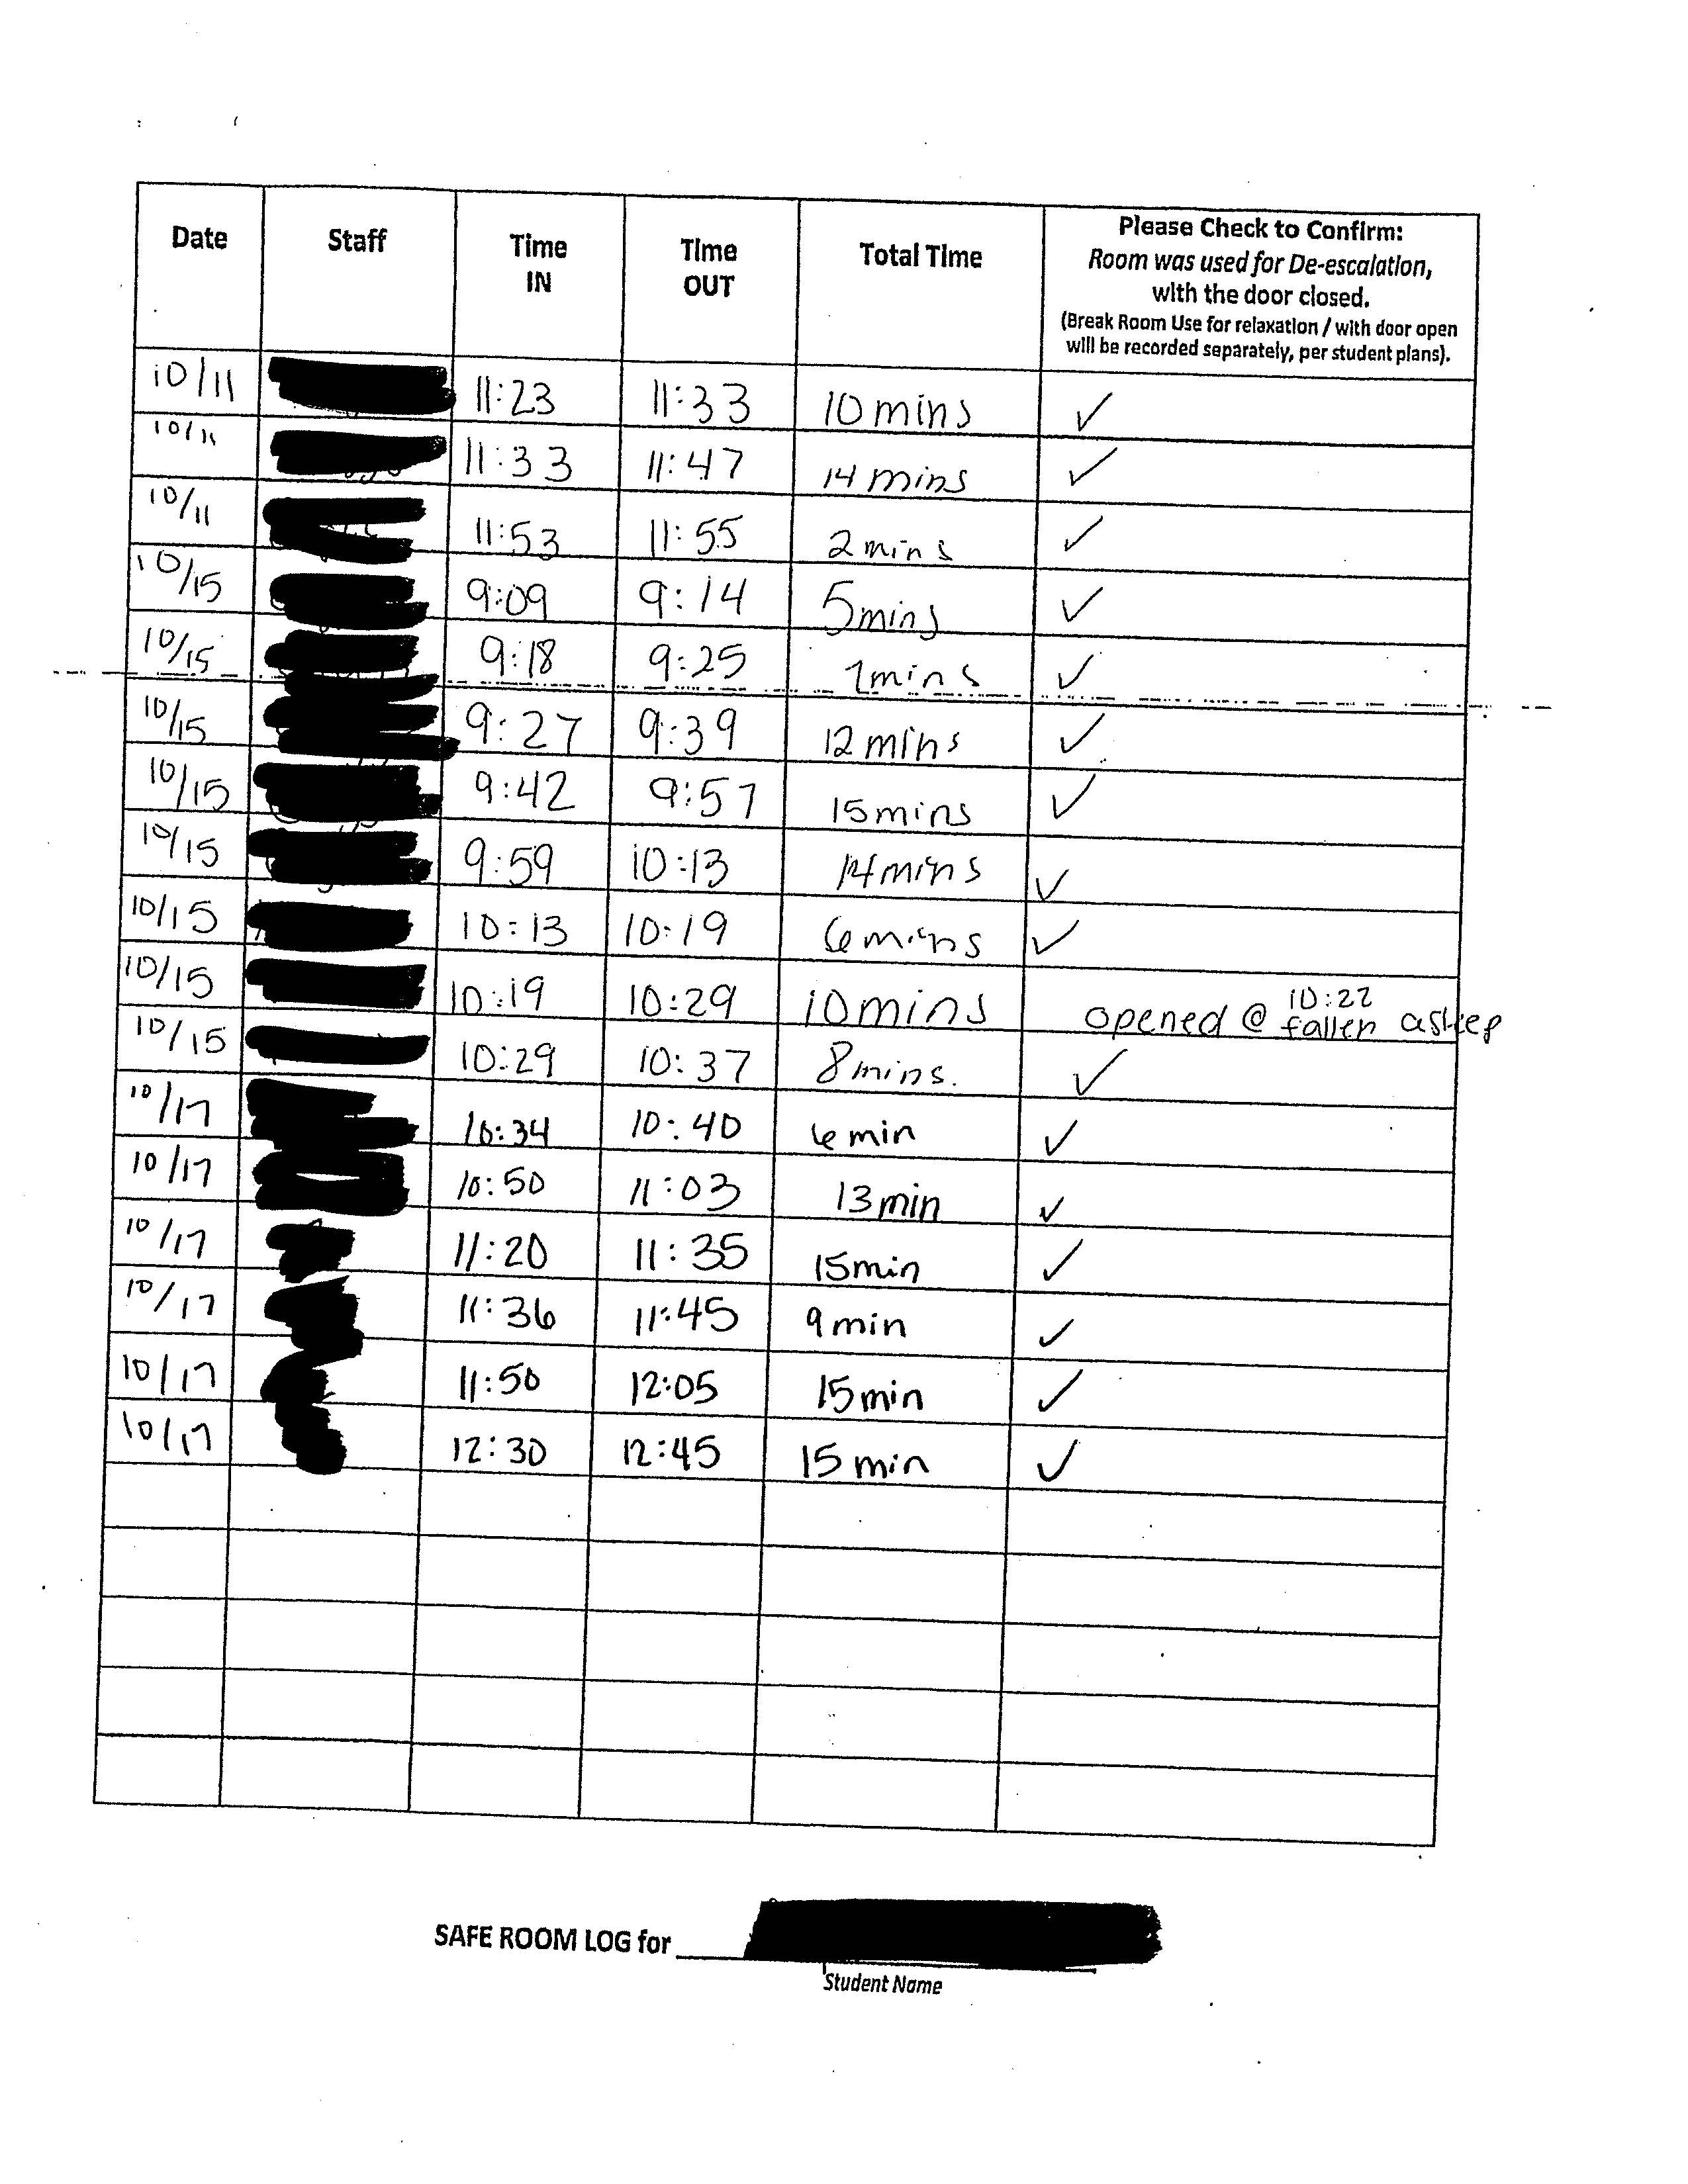 Date Staff Time IN Time OUT Total Time Please Check to Confirm:
Room was used for De-escalation,
with the door closed.
(Break Room Use for relaxation / with door open
will be recorded separately, per student plans).
10/11 11:23 11:33 10 mins ✓
10/11 11:33 11:47 14 mins ✓
10/11 11:53 11:55 2 mins ✓
10/15 9:09 9:14 5 mins ✓
10/15 9:18 9:25 7 mins ✓
10/15 9:27 9:39 12 mins ✓
10/15 9:42 9:57 15 mins ✓
10/15 9:59 10:13 14 mins ✓
10/15 10:13 10:19 6 mins ✓
10/15 10:19 10:29 10 mins opened @ 10:22 fallen asleep
10/15 10:29 10:37 8 mins. ✓
10/17 10:34 10:40 6 min ✓
10/17 10:50 11:03 13 min ✓
10/17 11:20 11:35 15 min ✓
10/17 11:36 11:45 9 min ✓
10/17 11:50 12:05 15 min ✓
10/17 12:30 12:45 15 min ✓
SAFE ROOM LOG for
Student Name